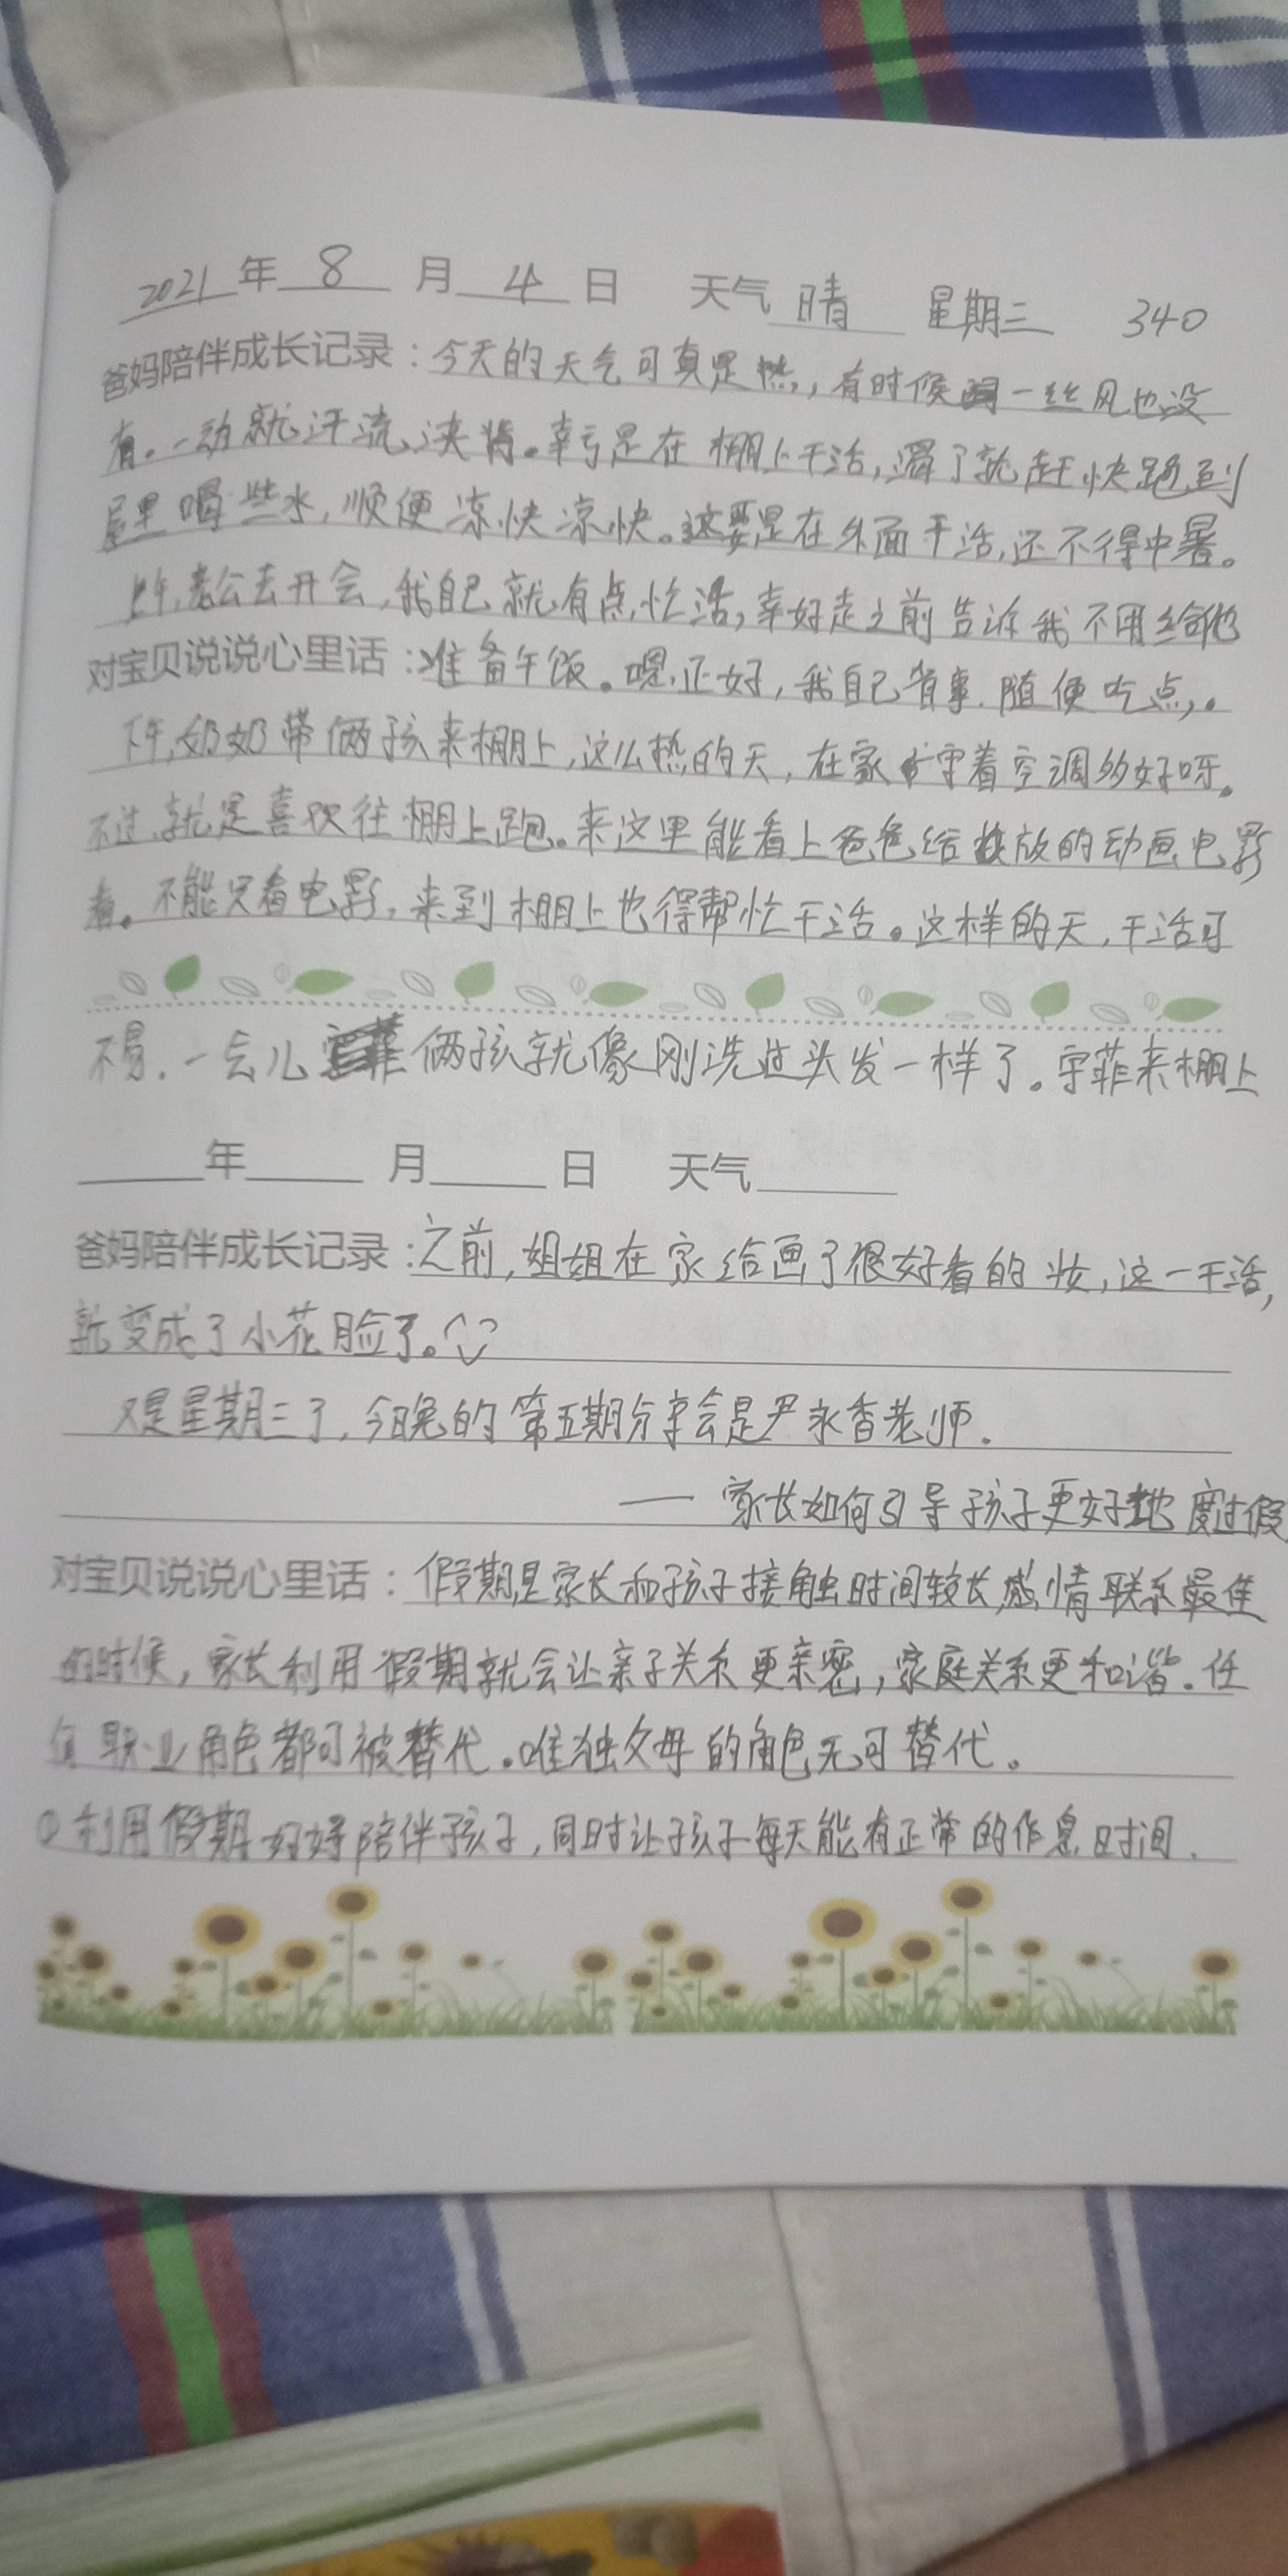 2021年 8 月 4 日 天气 晴 星期三 340
爸妈陪伴成长记录：今天的天气可真是热，有时候一丝风也没
有。一动就汗流浃背。幸亏是在棚上干活，渴了就赶快跑到
屋里喝些水，顺便凉快凉快。这要是在外面干活，还不得中暑。
上午，老公去开会，我自己就有点忙活，幸好走之前告诉我不用给他
对宝贝说说心里话：准备午饭。嗯，正好，我自己省事，随便吃点。
下午，奶奶带俩孩来棚上，这么热的天，在家守着空调多好呀。
不过，就是喜欢往棚上跑。来这里能看上爸爸给放的动画电影
看。不能只看电影，来到棚上也得帮忙干活。这样的天，干活可
不易．一会儿俩孩就像刚洗过头发一样了。宇菲来棚上
年 月 日 天气
爸妈陪伴成长记录：之前，姐姐在家给画了很好看的妆，这一干活，
就变成了小花脸了。
又是星期三了，今晚的第五期分享会是尹永香老师．
—— 家长如何引导孩子更好地度过假
对宝贝说说心里话：假期是家长和孩子接触时间较长，感情联系最佳
的时候，家长利用假期就会让亲子关系更亲密，家庭关系更和谐．任
何职业角色都可被替代．唯独父母的角色无可替代。
①利用假期好好陪伴孩子，同时让孩子每天能有正常的作息时间．